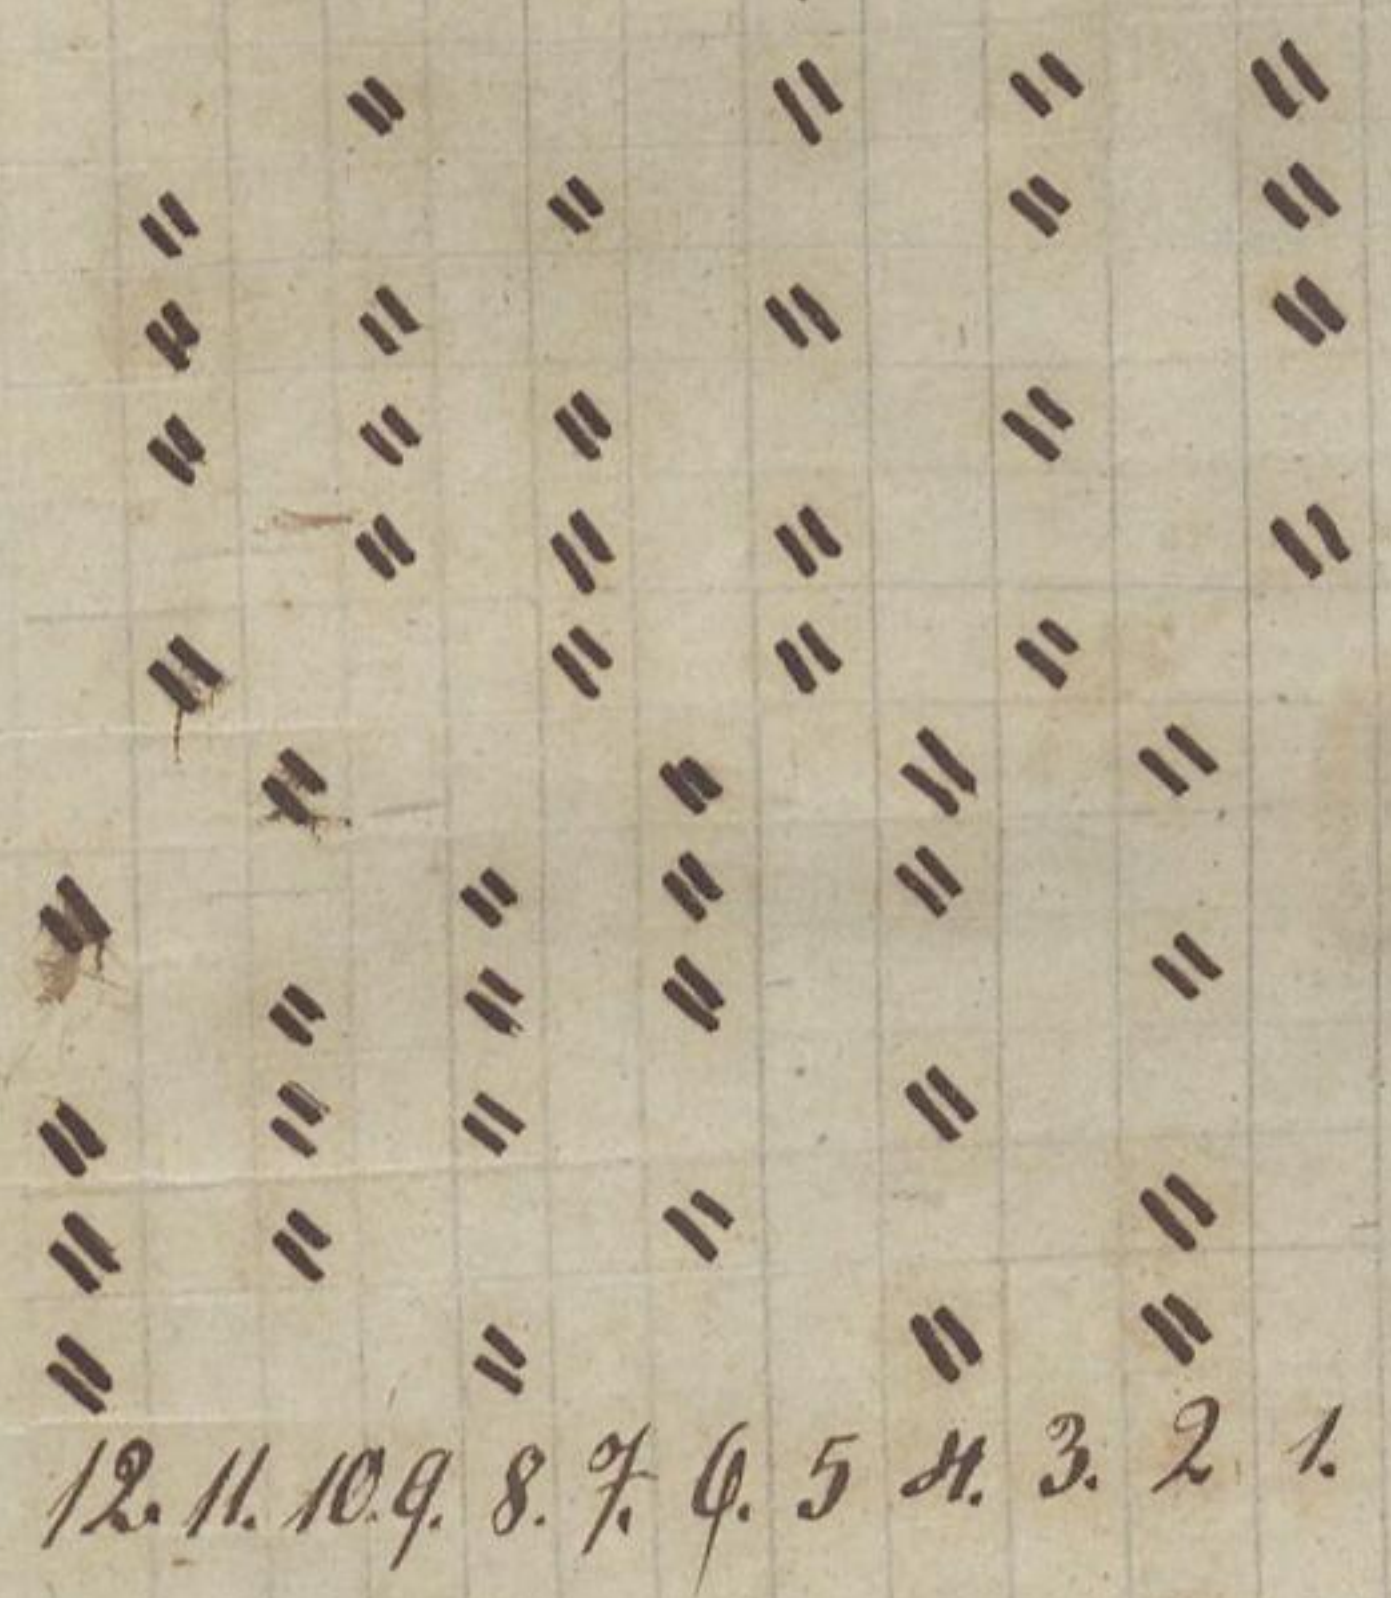 12. 11. 10. 9. 8. 7. 6. 5 4. 3. 2 1.